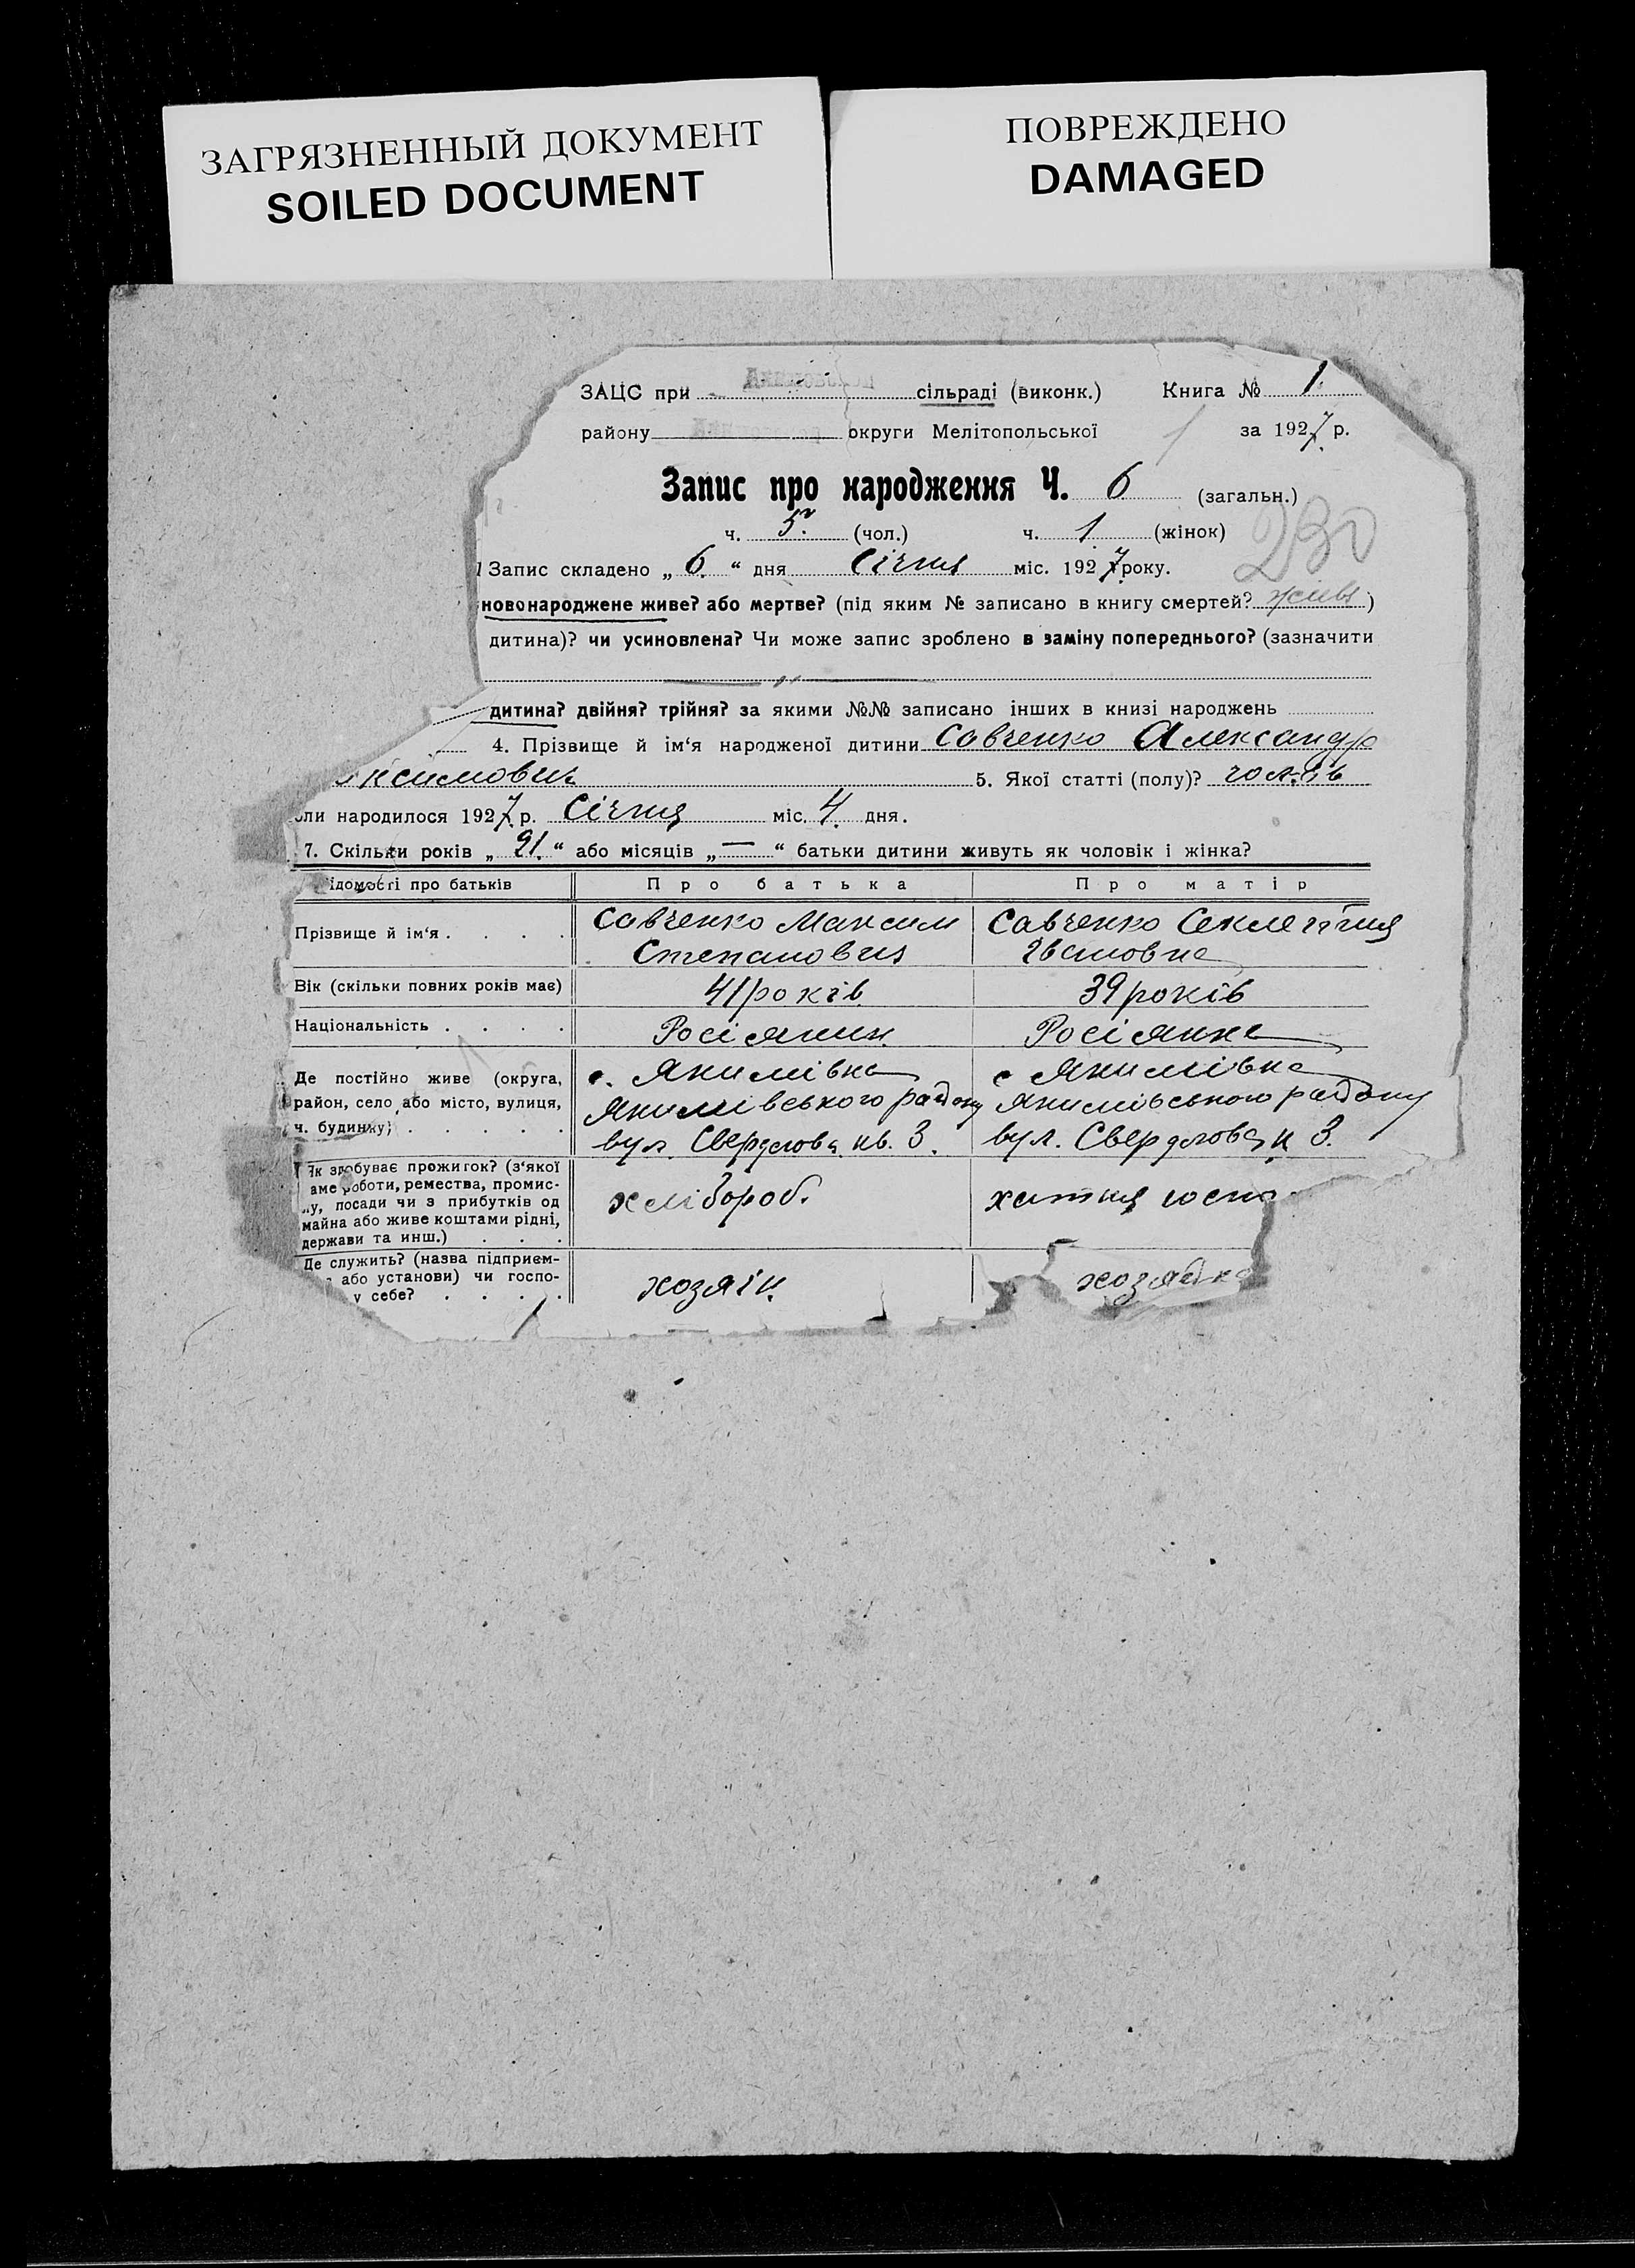 ЗАГРЯЗНЕННЫЙ ДОКУМЕНТ
SOILED DOCUMENT
ПОВРЕЖДЕНО
DAMAGED
ЗАЦС при сільраді (виконк.) Книга № 1.
району округи Мелітопольської за 1927 р.
Запис про народження Ч. 6 (загальн.)
230
ч. 5. (чол.) ч. 1 (жінок)
Запис складено „ 6. “ дня Січня міс. 1927 року.
новонароджене живе? або мертве? (під яким № записано в книгу смертей? живе)
дитина)? чи усиновлена? Чи може запис зроблено в заміну попереднього? (зазначити
дитина? двійня? трійня? за якими №№ записано інших в книзі народжень
4. Прізвище й ім‘я народженої дитини Савченко Александр
ксимович 5. Якої статті (полу)? чолків
оли народилося 1927 р. Січня міс. 4. дня.
7. Скільки років „ 21. “ або місяців „ — “ батьки дитини живуть як чоловік і жінка?
ідомості про батьків Про батька Про матір
Прізвище й ім‘я . . . . Савченко Максим Степанович Савченко Секлетіния Івановна
Вік (скільки повних років має) 41 років 39 років
Національність . . . . Росіянин Росіянка
Де постійно живе (округа, с. Якимівка с Якимівка
район, село або місто, вулиця, Якимівського району Якимівського району
ч. будинку) . . . . . вул. Свердлова кв. 3. вул. Свердлова к 3.
Як здобуває прожиток? (з‘якої
аме роботи, ремества, промис-
лу, посади чи з прибутків од хлібороб. хатня госпо
майна або живе коштами рідні,
держави та инш.) . . .
Де служить? (назва підприєм-
або установи) чи госпо- хозяін. хозяйка
у себе? . . . .